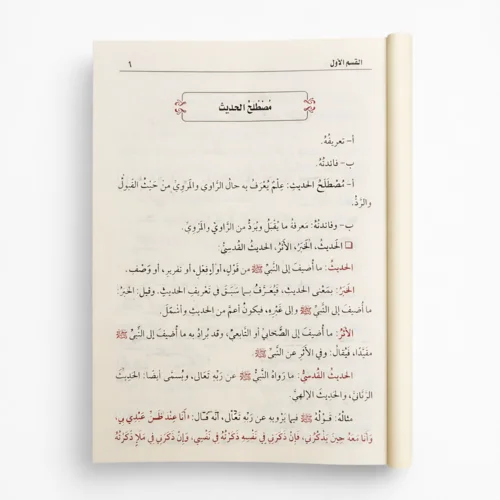 القسم الأول
٦
مُصْطَلَحُ الحديث
أ- تعريفُهُ.
ب- فائدتُهُ.
أ- مُصْطَلَحُ الحديثِ: عِلْمٌ يُعْرَفُ به حالُ الرَّاوي والمَرْوِيِّ مِنْ حَيْثُ القَبُولُ
والرَّدُّ.
ب- وفائدتُهُ: مَعرفةُ ما يُقْبَلُ ويُرَدُّ من الرَّاوِيْ والمَرْوِيِّ.
❑ الحديثُ، الخَبَرُ، الأَثَرُ، الحديثُ القُدسيُّ:
الحديثُ: ما أُضيفَ إلى النَّبيِّ ﷺ من قَوْلٍ، أو فِعْلٍ، أو تقريرٍ، أو وَصْفٍ.
الخَبَرُ: بمَعْنى الحديثِ، فيُعَرَّفُ بما سَبَقَ في تَعْريفِ الحديثِ. وقيل: الخَبَرُ:
ما أُضيفَ إلى النَّبيِّ ﷺ وإلى غَيْرِهِ، فيكونُ أعمَّ من الحديثِ وأَشْمَلَ.
الأَثَرُ: ما أُضيفَ إلى الصَّحَابيِّ أو التابعيِّ، وقد يُرادُ به ما أُضيفَ إلى النَّبيِّ ﷺ
مقيَّدًا، فيُقالُ: وفي الأَثَرِ عن النَّبيِّ ﷺ.
الحديثُ القُدسيُّ: ما رَوَاهُ النَّبيُّ ﷺ عن رَبِّهِ تَعَالى، ويُسمَّى أيضًا: الحديثَ
الرَّبَّانيَّ، والحديثَ الإلهيَّ.
مثالُهُ: قَوْلُهُ ﷺ فيما يَرْويهِ عن رَبِّهِ تَعَالَى، أنَّه قَالَ: «أَنَا عِنْدَ ظَنِّ عَبْدِي بي،
وَأَنَا مَعَهُ حِينَ يَذْكُرُني، فَإِنْ ذَكَرَني فِي نَفْسِهِ ذَكَرْتُهُ فِي نَفْسِي، وَإِنْ ذَكَرَني فِي مَلَإٍ ذَكَرْتُهُ